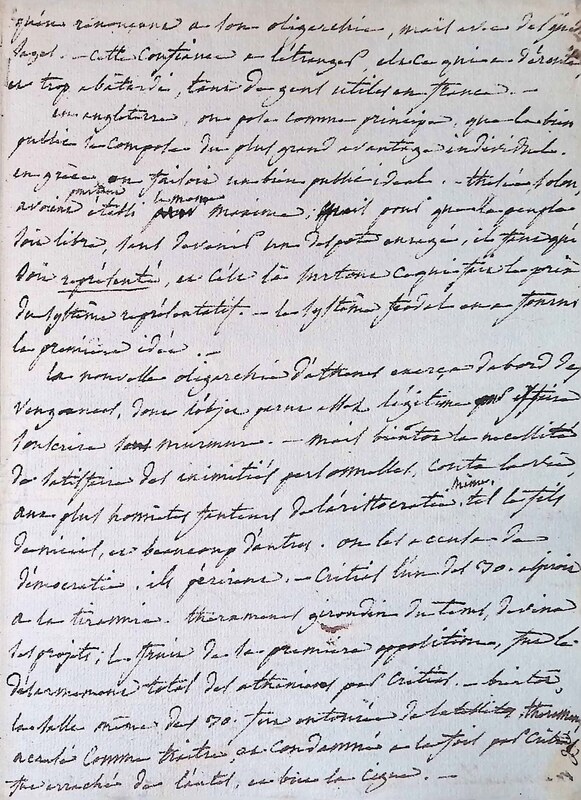 qu'en renonçant a son oligarchie, mais avec des
sages. — cette confiance a l'étranger, est ce qui a
et trop abâtardi, tant de gens utiles en france. —
en angleterre, on pose comme principe, que le bien
public se compose du plus grand avantage individuel.
en grèce on faisoit un bien public ideal. —
avoient établi maxime, mais pour que le peuple
soit libre, sans devenir un despote enragé, il faut qu'il
soit représenté, et c'est la surtout ce qui fait le prix
du système représentatif. — le système féodal en a fourni
la première idée. —
la nouvelle oligarchie d'athenes exerça d'abord des
vengeances, dont l'objet parut assez légitime
souscrire sans murmure. — mais bientôt la necessité
de satisfaire des inimitiés personnelles, couta la vie,
aux plus honnêtes de l'aristocratie même. tel le fils
de nicias, et beaucoup d'autres. on les accusa de
démocratie. ils périrent. — Critias l'un des 30. aspiroit
a la tirannie. theramenes girondin du tems, devina
ses projets. le fruit de la première opposition, fut le
désarmement total des athéniens par Critias. — bientôt,
la salle même des 30. fut entourée de satellites. theramene
accusé comme traitre, et condamné a la fois par Critias
fut arraché de l'autel, et but la cigue. —